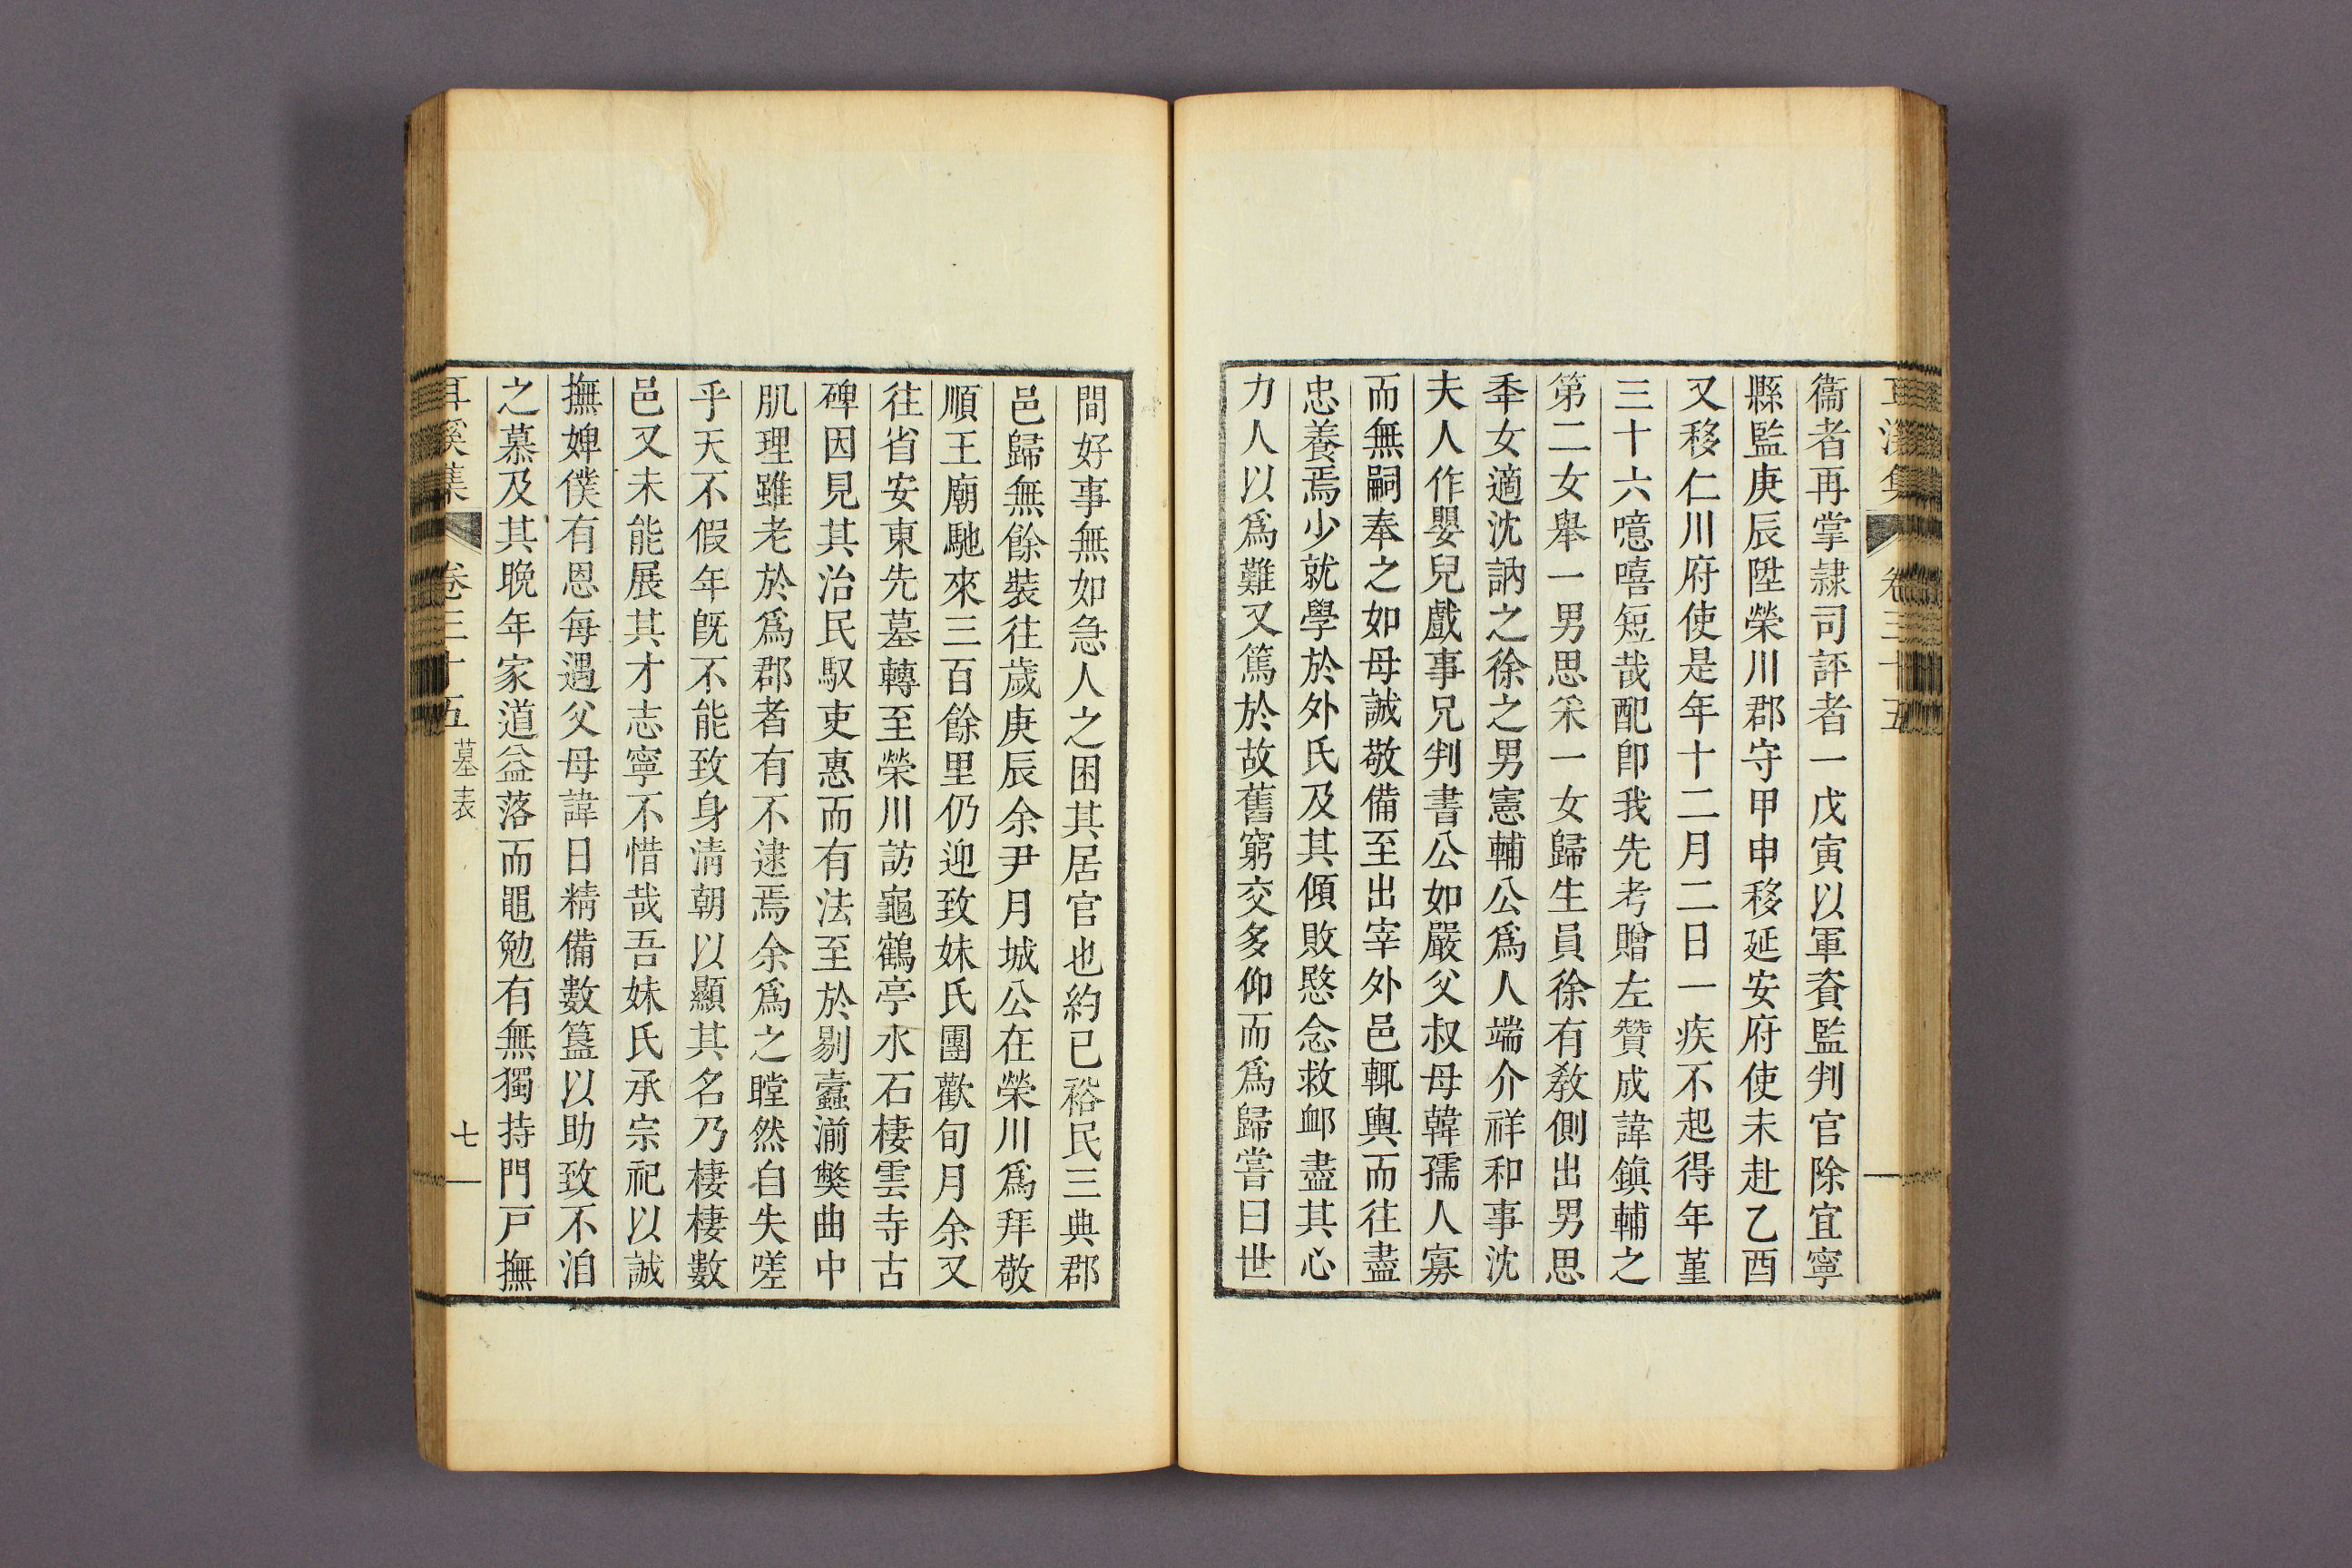 衞者再掌隷司評者一戊寅以軍資監判官除宜寧
縣監庚辰陞榮川郡守甲申移延安府使未赴乙酉
又移仁川府使是年十二月二日一疾不起得年菫
三十六噫嘻短哉配卽我先考贈左贊成諱鎭輔之
第二女舉一男思釆一女歸生員徐有敎側出男思
秊女適沈訥之徐之男憲輔公爲人端介祥和事沈
夫人作嬰兒戲事兄判書公如嚴父叔母韓孺人寡
而無嗣奉之如母誠敬備至出宰外邑輒輿而往盡
忠養焉少就學於外氏及其傾敗愍念救䘏盡其心
力人以爲難又篤於故舊窮交多仰而爲歸嘗曰世
間好事無如急人之困其居官也約己裕民三典郡
邑歸無餘裝往歲庚辰余尹月城公在榮川爲拜敬
順王廟馳來三百餘里仍迎致妹氏團歡旬月余又
往省安東先墓轉至榮川訪龜鶴亭水石棲雲寺古
碑因見其治民馭吏惠而有法至於剔蠹湔獘曲中
肌理雖老於爲郡者有不逮焉余爲之瞠然自失嗟
乎天不假年旣不能致身淸朝以顯其名乃棲棲數
邑又未能展其才志寧不惜哉吾妹氏承宗祀以誠
撫婢僕有恩每遇父母諱日精備數簋以助致不洎
之慕及其晩年家道益落而黽勉有無獨持門戸撫
耳溪集 卷三十五 墓表 七